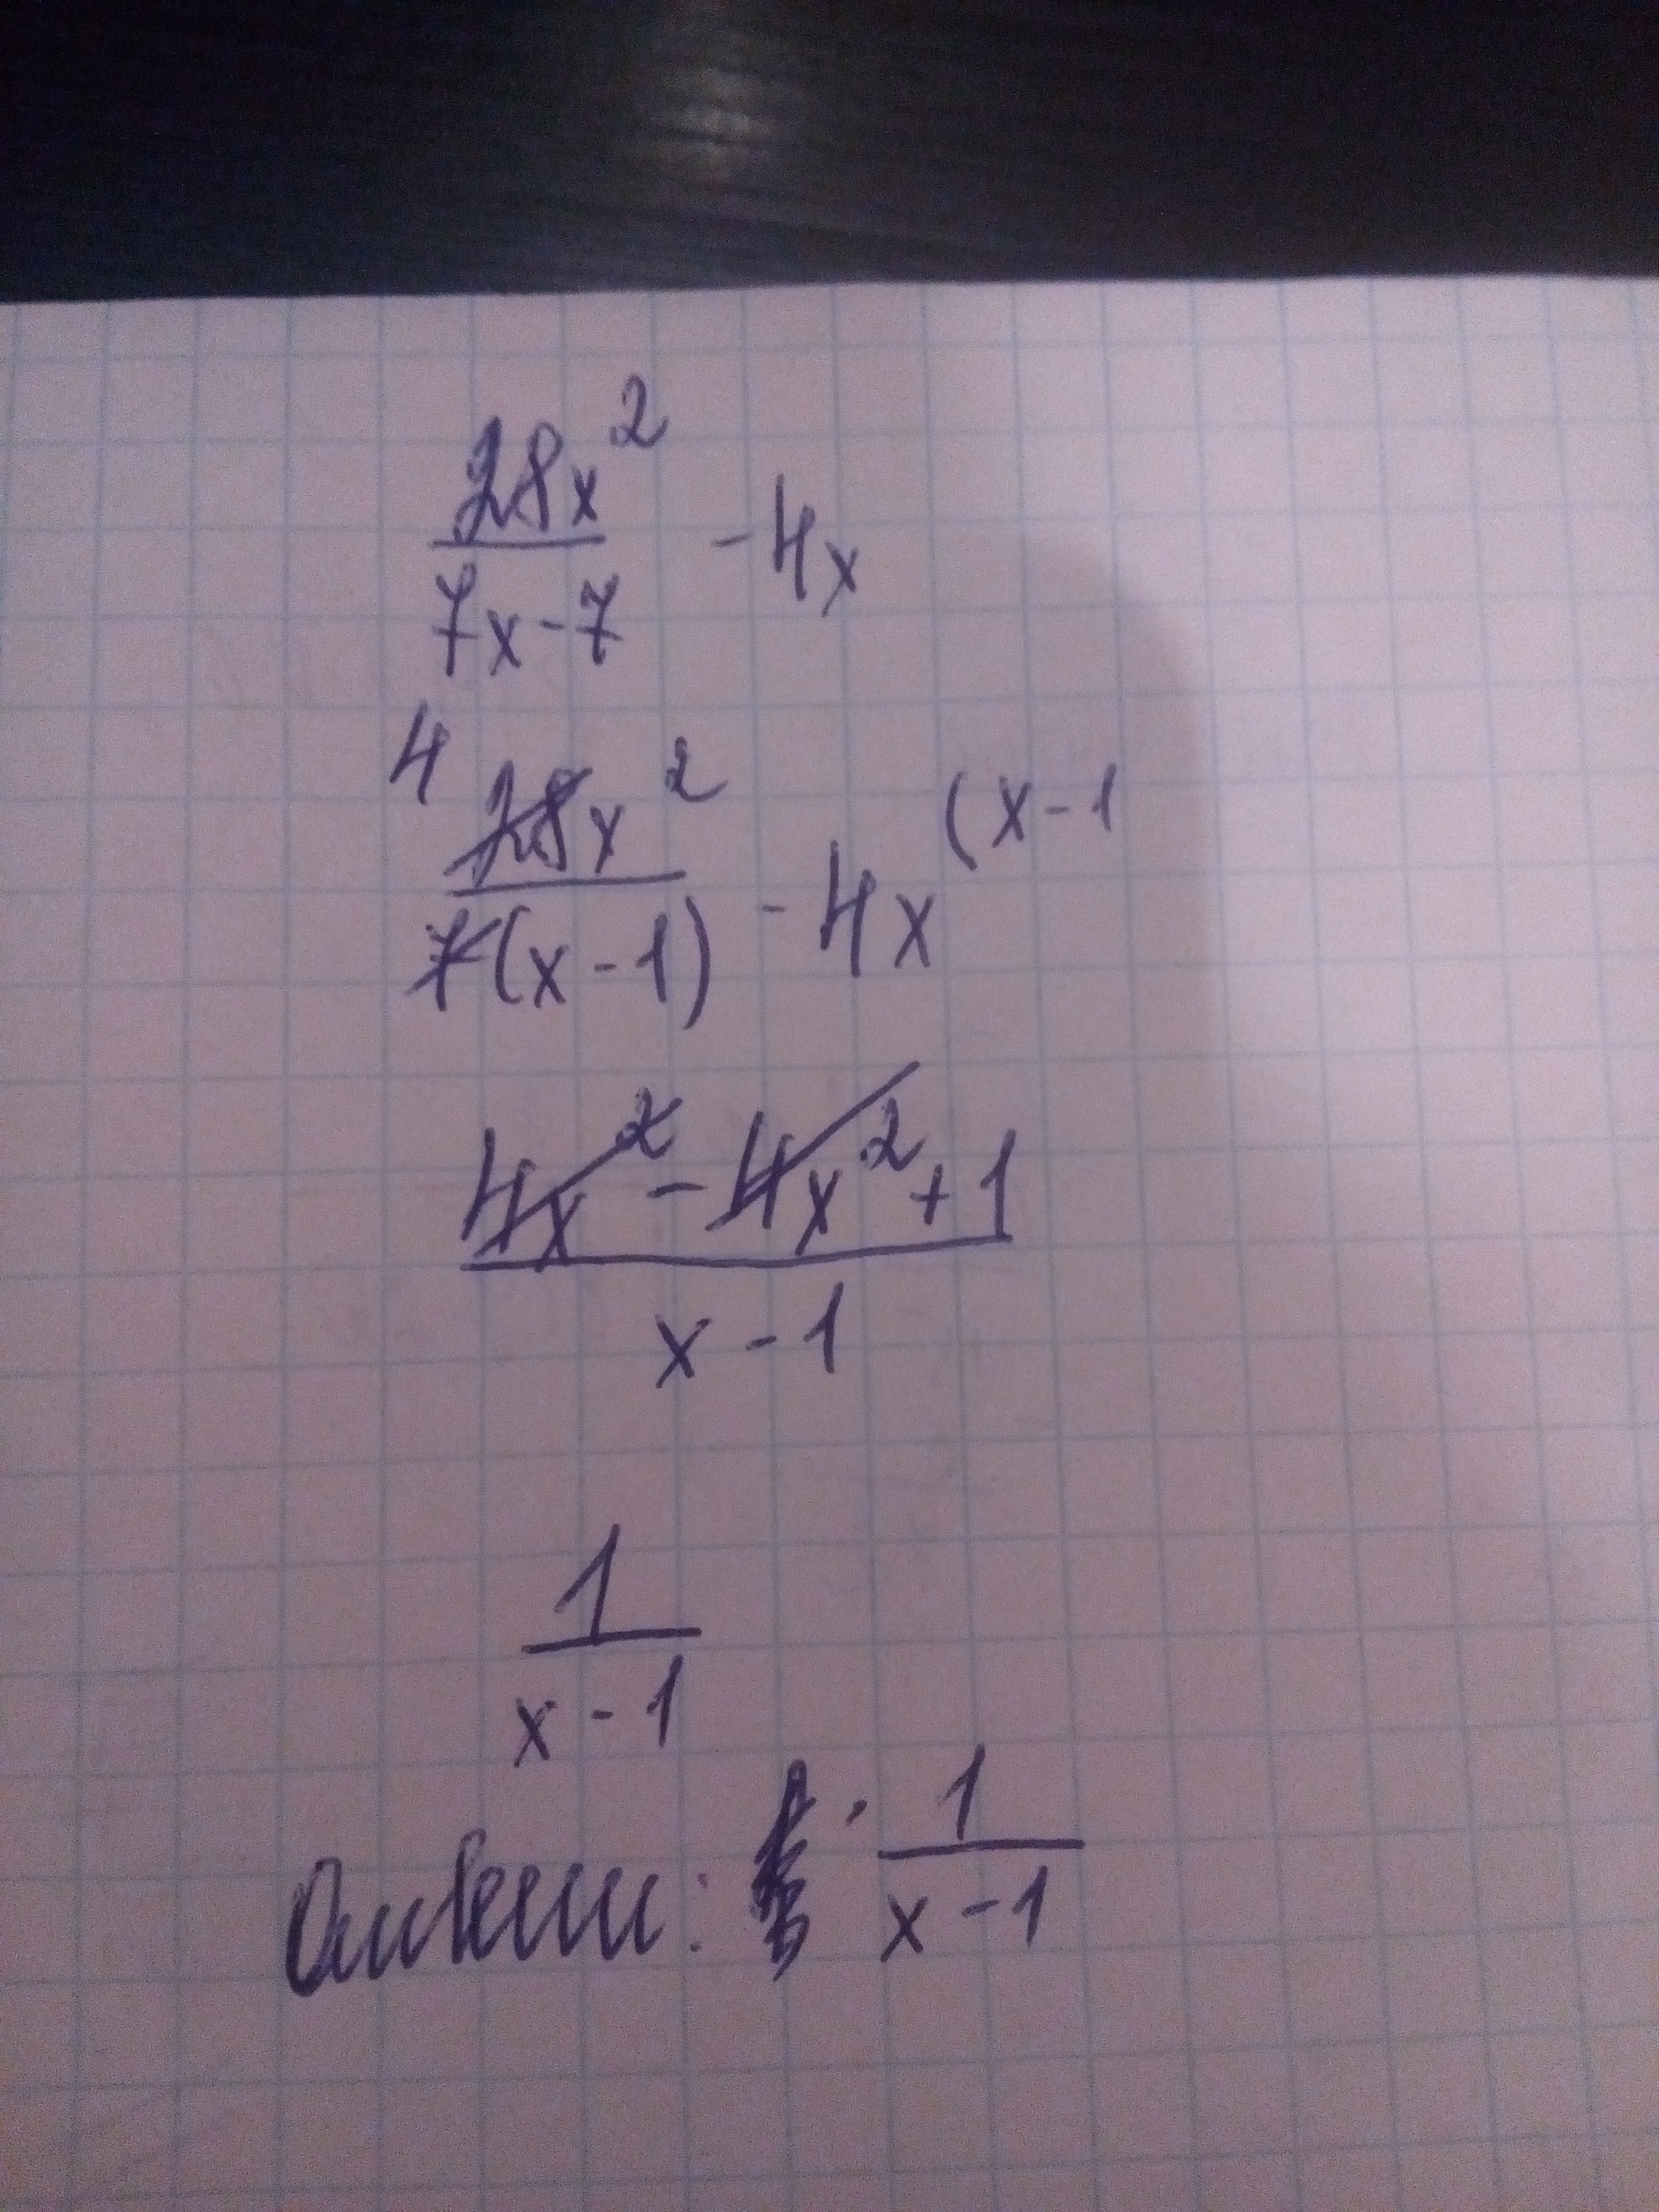 28x²/(7x-7) - 4x
4 28x²/(7(x-1)) - 4x (x-1
(4x² - 4x² + 1)/(x-1)
1/(x-1)
Ответ: 1/(x-1)